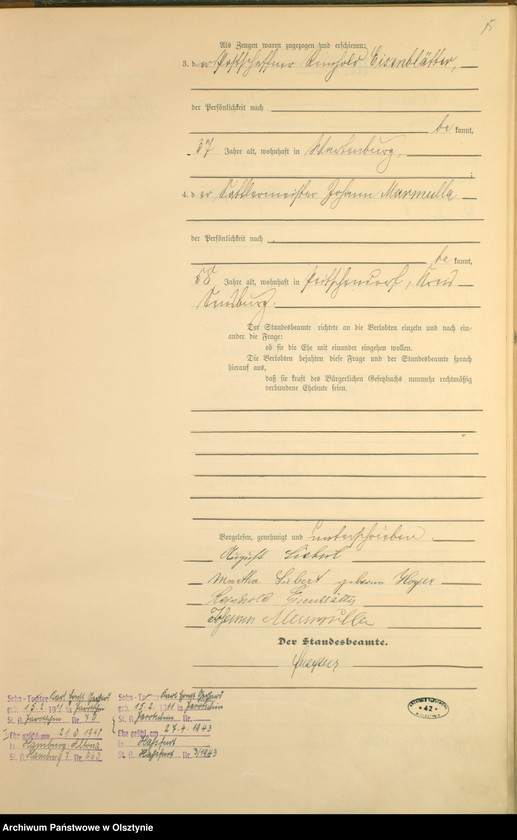 15
Als Zeugen waren zugezogen und erschienen:
3. der Postschaffner Reinhold Eisenblätter,
der Persönlichkeit nach
bekannt,
37 Jahre alt, wohnhaft in Wartenburg,
4. der Sattlermeister Johann Marmulla
der Persönlichkeit nach
bekannt,
58 Jahre alt, wohnhaft in Peitschendorf, Kreis
Sensburg.
Der Standesbeamte richtete an die Verlobten einzeln und nach ein-
ander die Frage:
ob sie die Ehe mit einander eingehen wollen.
Die Verlobten bejahten diese Frage und der Standesbeamte sprach
hierauf aus,
daß sie kraft des Bürgerlichen Gesetzbuchs nunmehr rechtmäßig
verbundene Eheleute seien.
Vorgelesen, genehmigt und unterschrieben
August Siebert
Martha Siebert geborene Hoyer
Reinhold Eisenblätter
Johann Marmulla
Der Standesbeamte.
Sohn - Karl Ernst Gerhard
geb. 15.2. 1911 in Jarotschin
St. A. Jarotschin Nr.
Ehe geschl. am
in Hamburg Altona
St. Hamburg Nr.
Karl Ernst Gerhard
geb. 15.2. 1911 in Jarotschin
St. A. Jarotschin Nr.
Ehe geschl. am 27.4.1943
in Haßfurt
St. Haßfurt Nr. 3/1943
42
Archiwum Państwowe w Olsztynie